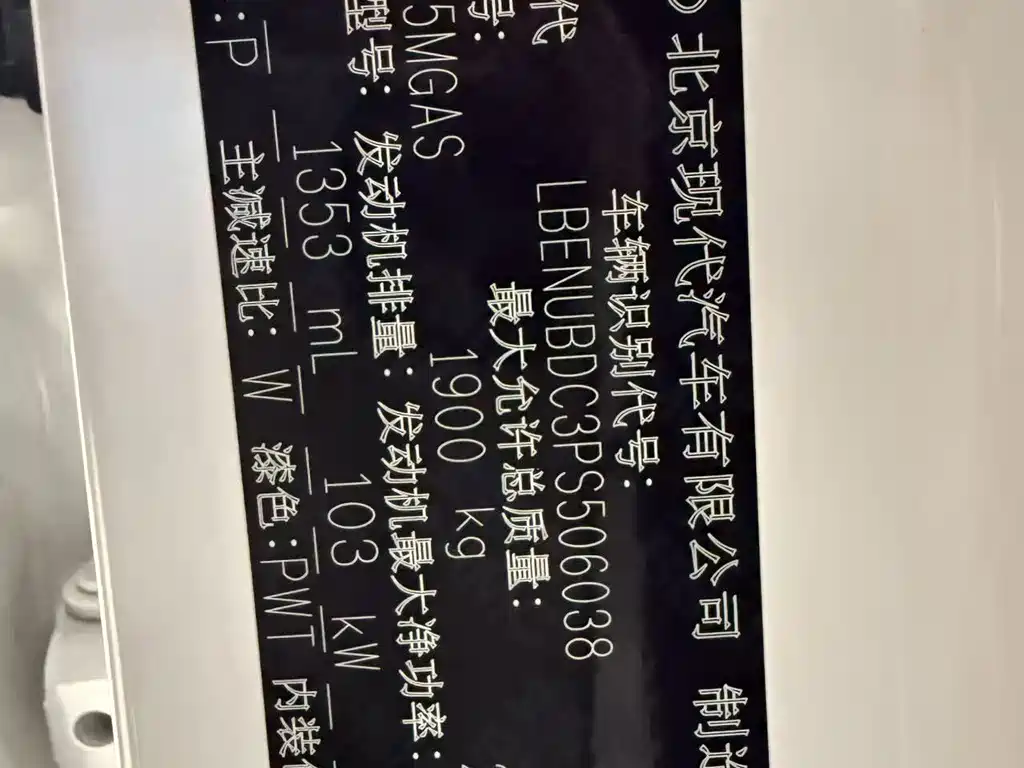 北京现代汽车有限公司 制造
车辆识别代号:
LBENUBDC3PS506038
代
最大允许总质量:
号:
1900 kg
5MGAS
型号: 发动机排量: 发动机最大净功率:
1353 mL 103 kW
:P 主减速比: W 漆色:PWT 内装